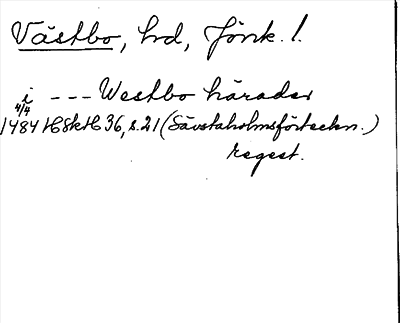 Västbo, hrd, Jönk. l.
i --- Westbo härader
4/4
1484 HSkH 36, s. 21 (Sävstaholmsförteckn.)
regest.